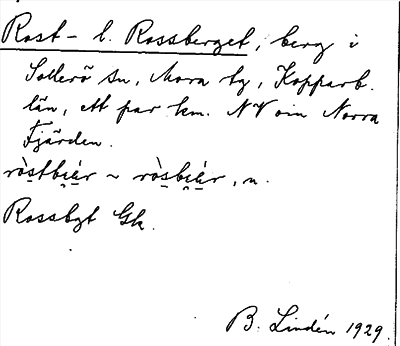 Rost- l. Rossberget, berg i
Sollerö sn, Mora tg, Kopparb.
län, ett par km. NV om Norra
Fjärden.
ròstbi̯èr ~ ròsbi̯èr, n.
Rossbgt Gk.
B. Lindén 1929.